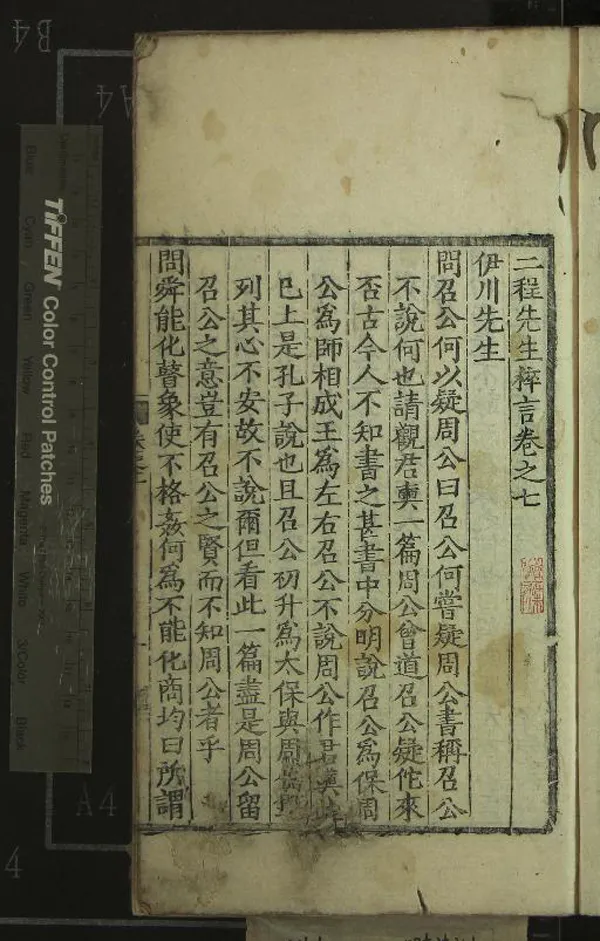 二程先生粹言卷之七
伊川先生
問召公何以疑周公曰召公何嘗疑周公書稱召公
不說何也請觀君奭一篇周公曾道召公疑佗來
否古今人不知書之甚書中分明說召公爲保周
公爲師相成王爲左右召公不說周公作君奭此
已上是孔子說也且召公初升爲太保與周公
列其心不安故不說爾但看此一篇盡是周公留
召公之意豈有召公之賢而不知周公者乎
問舜能化瞽象使不格姦何爲不能化商均曰所謂
TIFFEN Color Control Patches
Blue
Cyan
Green
Yellow
Red
Magenta
White
3/Color
Black
B4
A4
A4
4